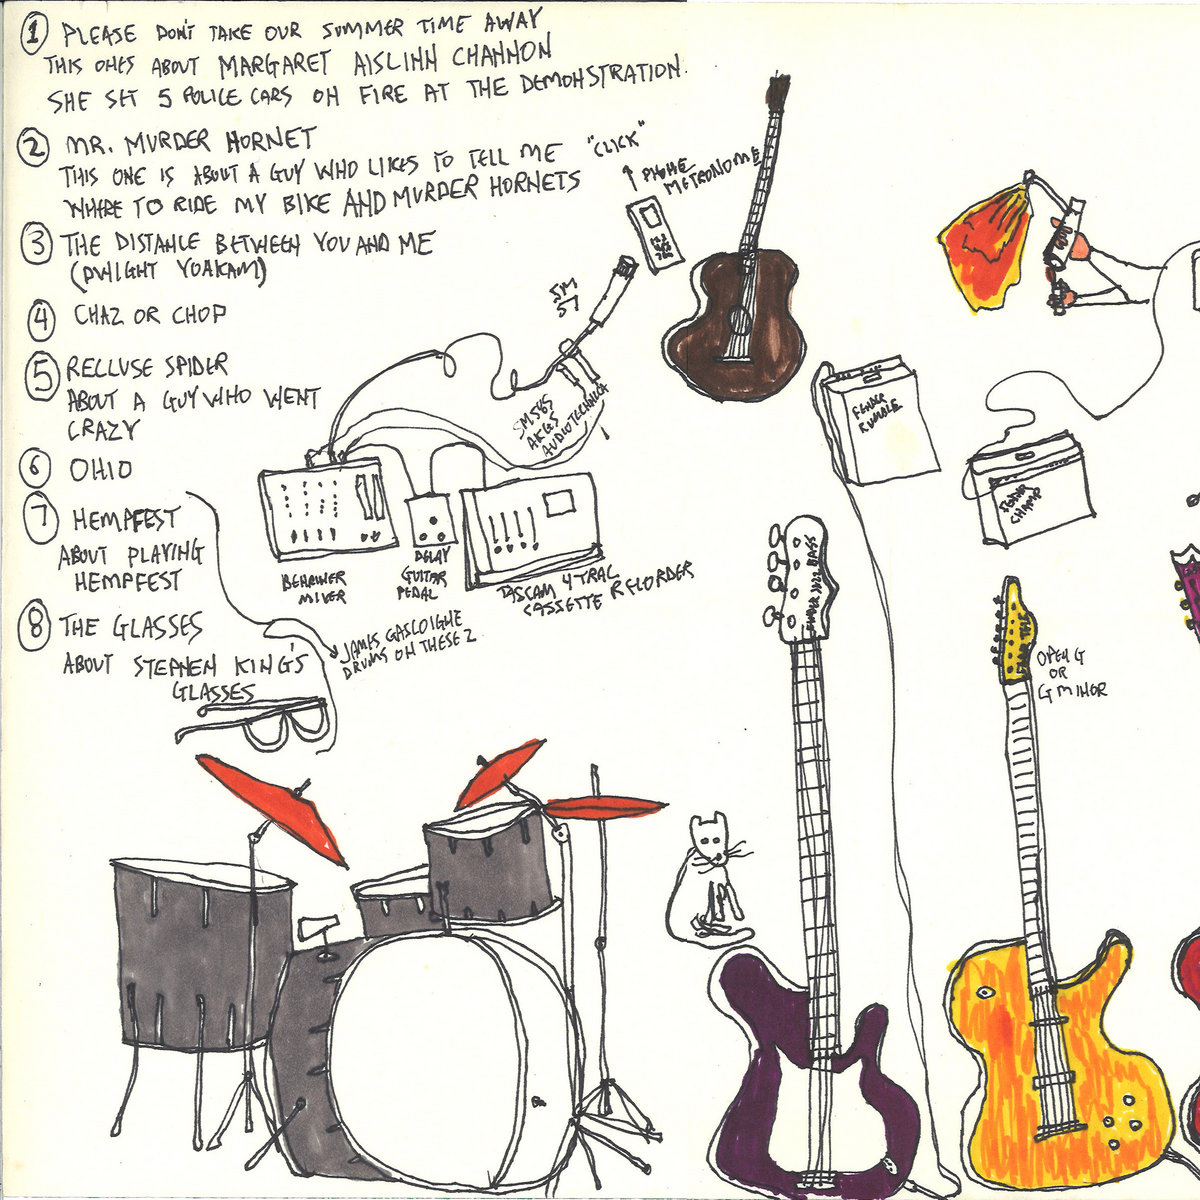 1 PLEASE DON'T TAKE OUR SUMMER TIME AWAY
THIS ONES ABOUT MARGARET AISLINN CHANNON
SHE SET 5 POLICE CARS ON FIRE AT THE DEMONSTRATION.
2 MR. MURDER HORNET
THIS ONE IS ABOUT A GUY WHO LIKES TO TELL ME
WHERE TO RIDE MY BIKE AND MURDER HORNETS
3 THE DISTANCE BETWEEN YOU AND ME
(DWIGHT YOAKAM)
4 CHAZ OR CHOP
5 RECLUSE SPIDER
ABOUT A GUY WHO WENT
CRAZY
6 OHIO
7 HEMPFEST
ABOUT PLAYING
HEMPFEST
8 THE GLASSES
ABOUT STEPHEN KING'S
GLASSES
JAMES GASCOIGNE
DRUMS ON THESE 2
"CLICK"
PHONE
METRONOME
SM
57
SM58S
AKGS
AUDIOTECHNICA
BEHRINER
MIXER
DELAY
GUITAR
PEDAL
TASCAM 4 TRAC
CASSETTE RECORDER
FENDER
RUMBLE
FENDER
CHAMP
BASS
OPEN G
OR
G MINOR